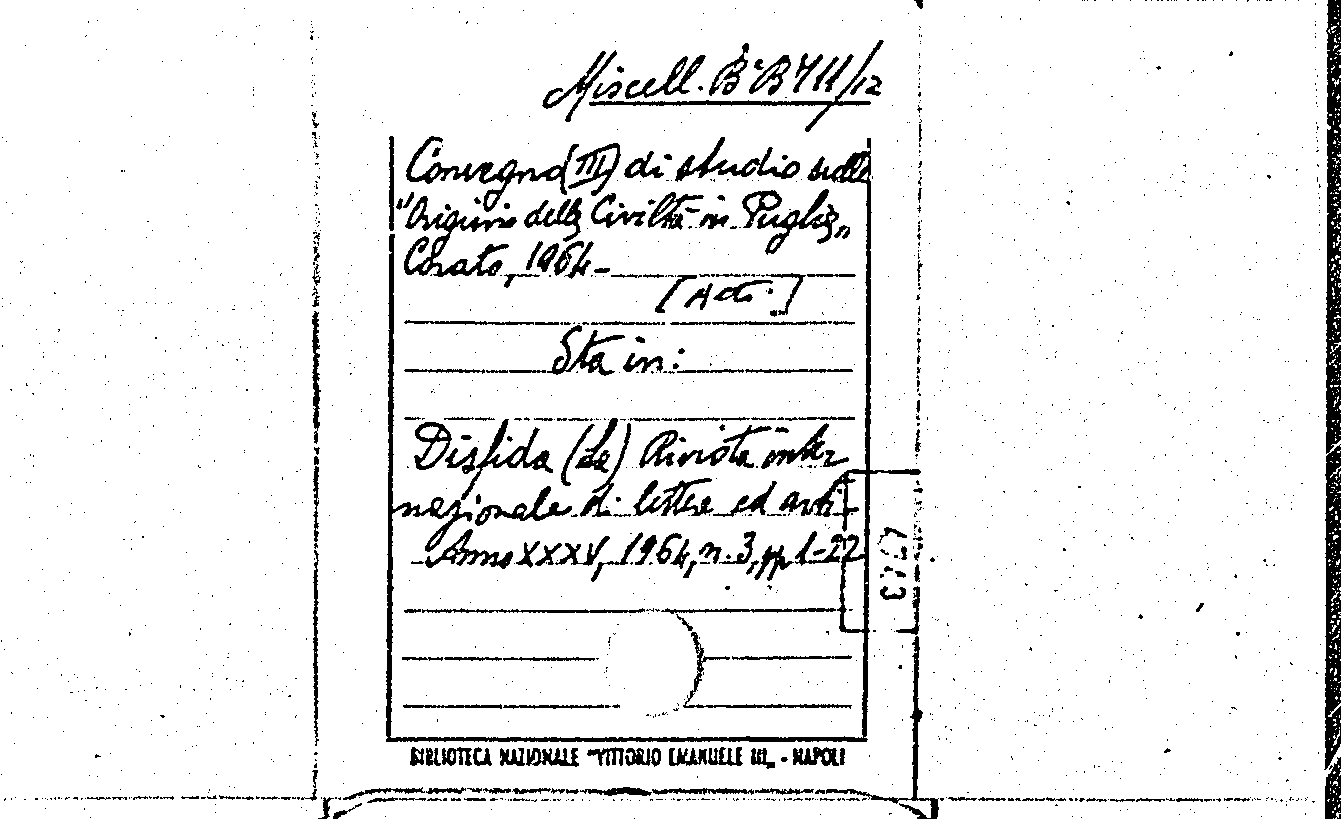 Miscell. B B 711/12
Convegno (III) di studio sulle
"Origini della Civiltà in Puglia„
Corato, 1964-
[Atti.]
Sta in:
Disfida (La) Rivista inter
nazionale di lettere ed arti-
Anno XXXV, 1964, n. 3, pp 1-22
BIBLIOTECA NAZIONALE "VITTORIO EMANUELE III„ - NAPOLI